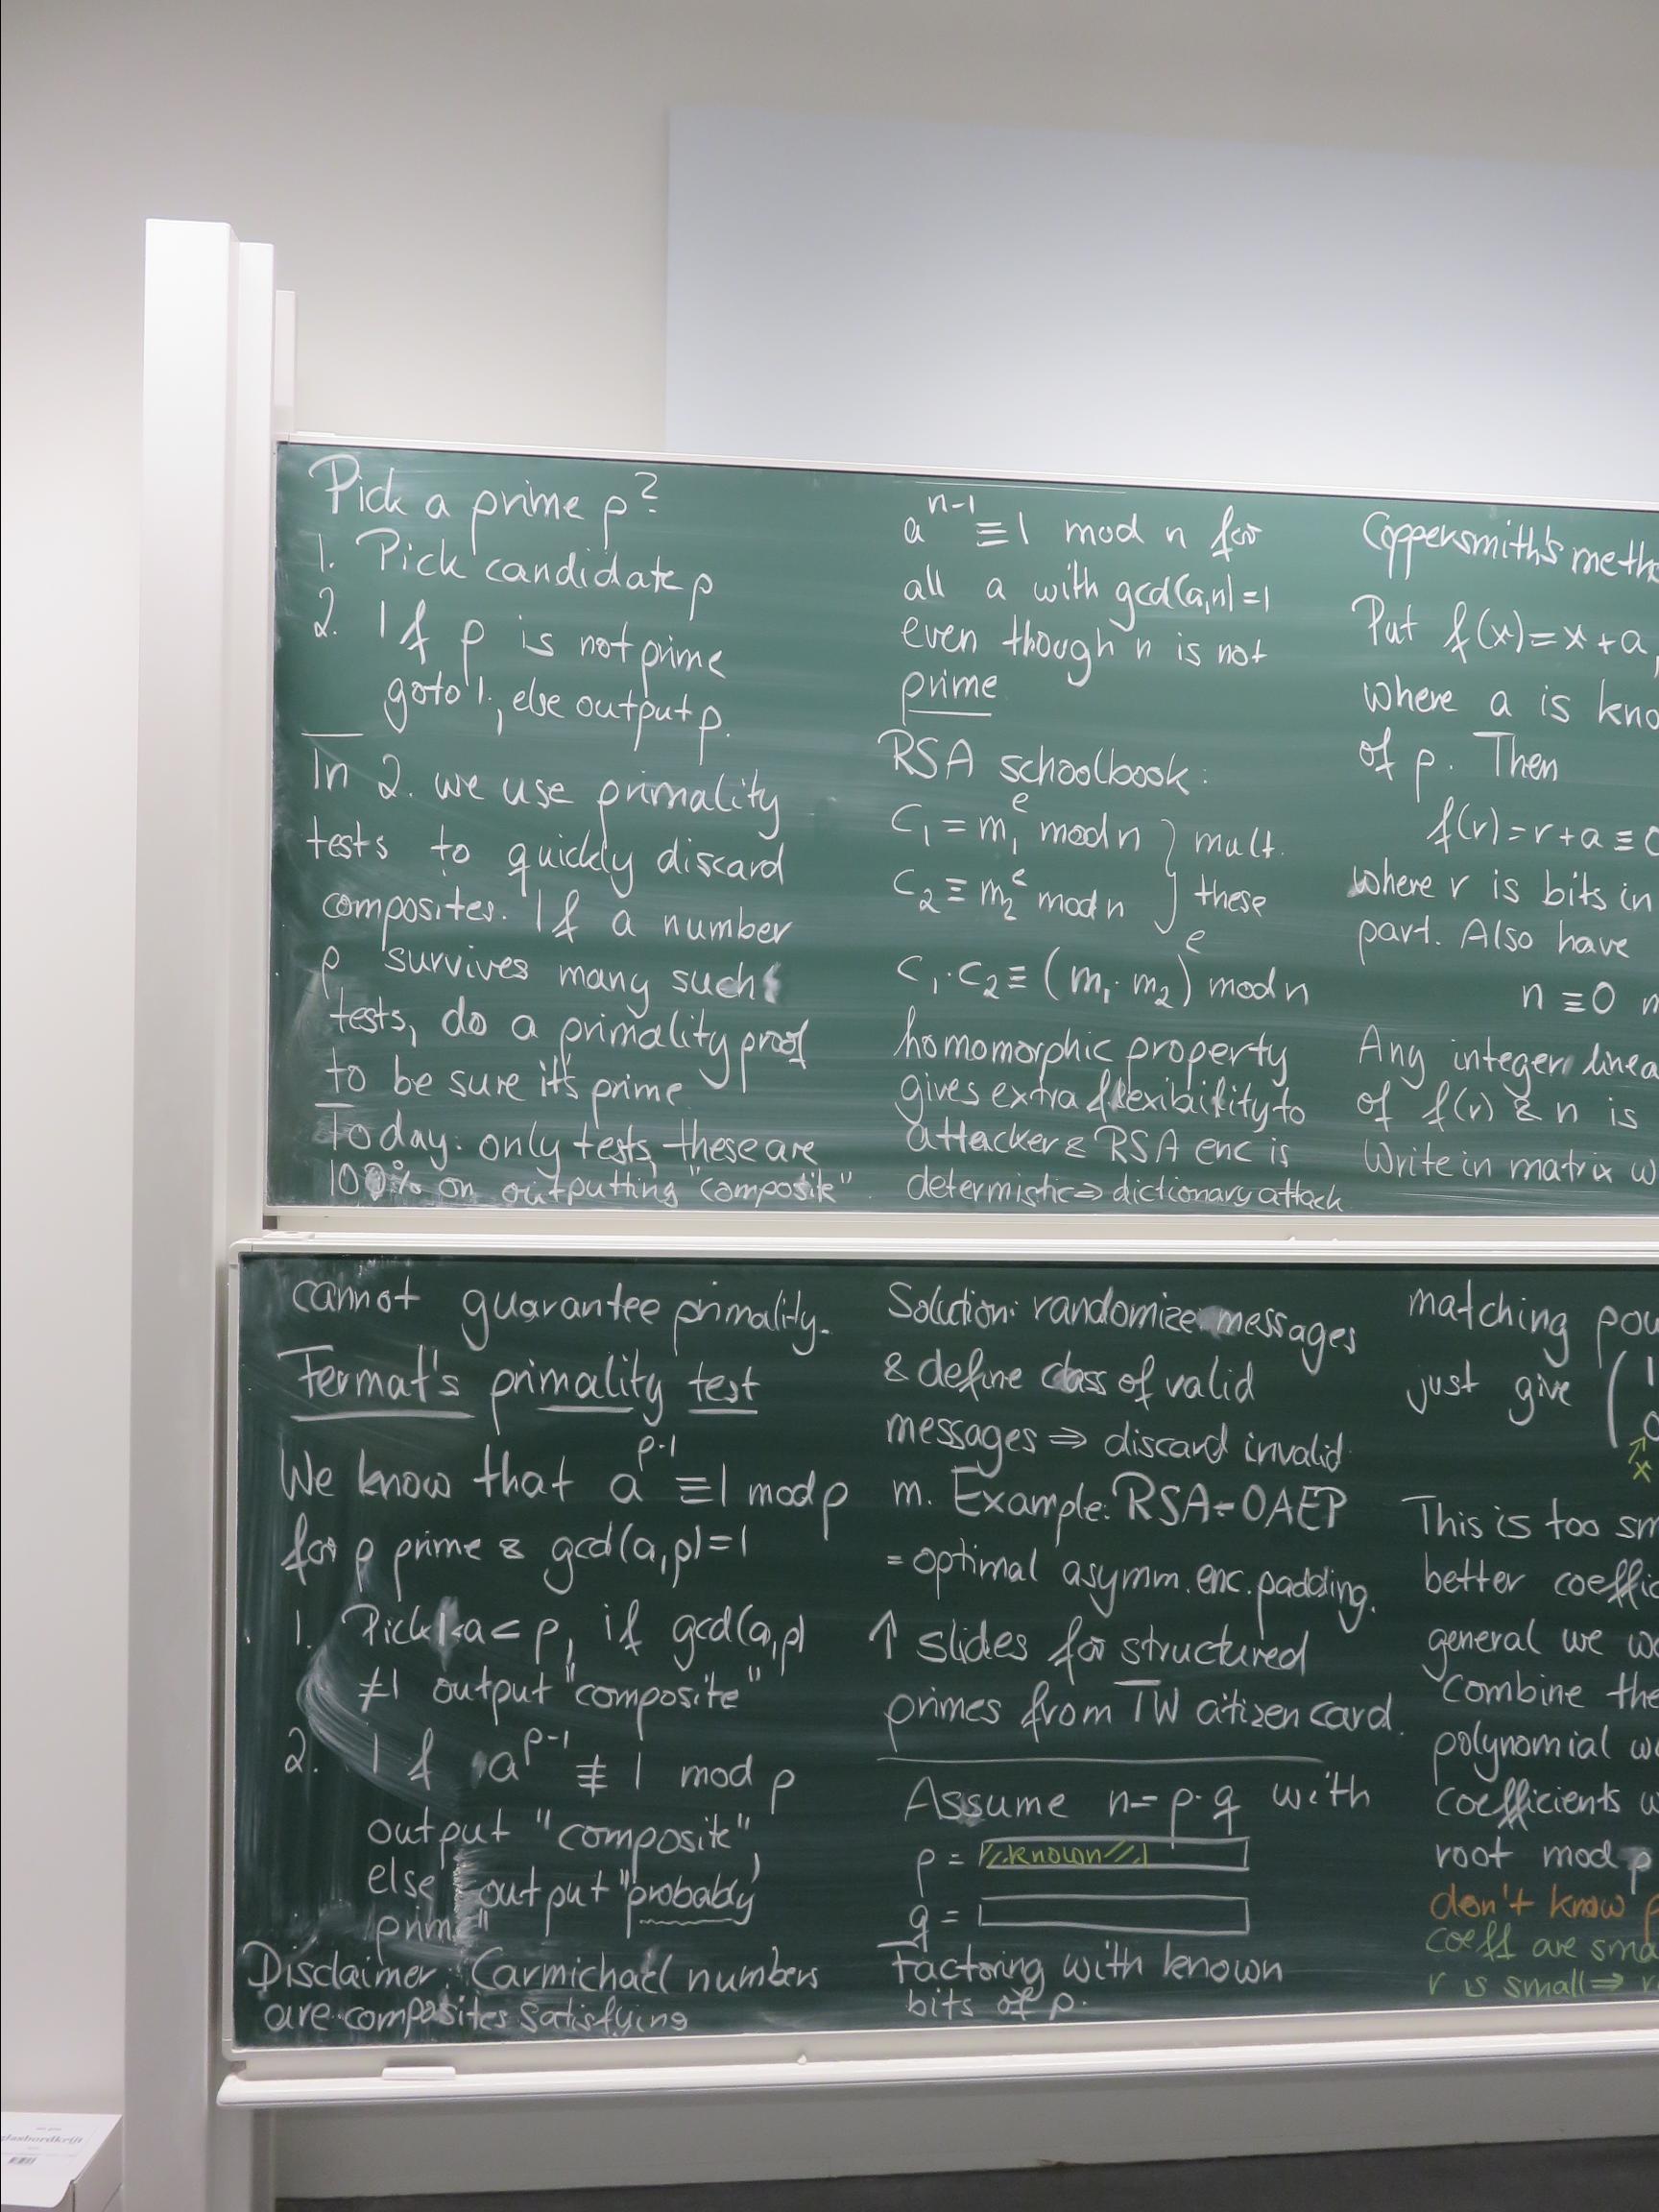 Pick a prime p?
1. Pick candidate p
2. If p is not prime
goto 1., else output p.
In 2. we use primality
tests to quickly discard
composites. If a number
p survives many such
tests, do a primality proof
to be sure it's prime
Today: only tests, these are
100% on outputting "composite".
cannot guarantee primality.
Fermat's primality test
We know that a^{p-1} ≡ 1 mod p
for p prime & gcd(a,p)=1
1. Pick 1<a<p, if gcd(a,p)
≠1 output "composite"
2. If a^{p-1} ≢ 1 mod p
output "composite",
else output "probably
prime"
Disclaimer: Carmichael numbers
are composites satisfying
a^{n-1} ≡ 1 mod n for
all a with gcd(a,n)=1
even though n is not
prime
RSA schoolbook:
c₁ = m₁^e mod n } mult.
c₂ ≡ m₂^e mod n } these
c₁·c₂ ≡ (m₁·m₂)^e mod n
homomorphic property
gives extra flexibility to
attacker & RSA enc is
determistic ⇒ dictionary attack
Solution: randomize messages
& define class of valid
messages ⇒ discard invalid
m. Example: RSA-OAEP
= optimal asymm. enc. padding.
↑ slides for structured
primes from TW citizen card.
Assume n = p·q with
p = known
q =
Factoring with known
bits of p.
Coppersmith's meth
Put f(x) = x + a,
where a is kno
of p. Then
f(r) = r + a ≡ 0
where r is bits in
part. Also have
n ≡ 0 m
Any integer linea
of f(r) & n is
Write in matrix w
matching pow
just give ( 1
0
↑
x
This is too sm
better coeffic
general we wo
combine the
polynomial w
coefficients w
root mod p
don't know p
coeff are sma
r is small ⇒ r
glasbordkrijt